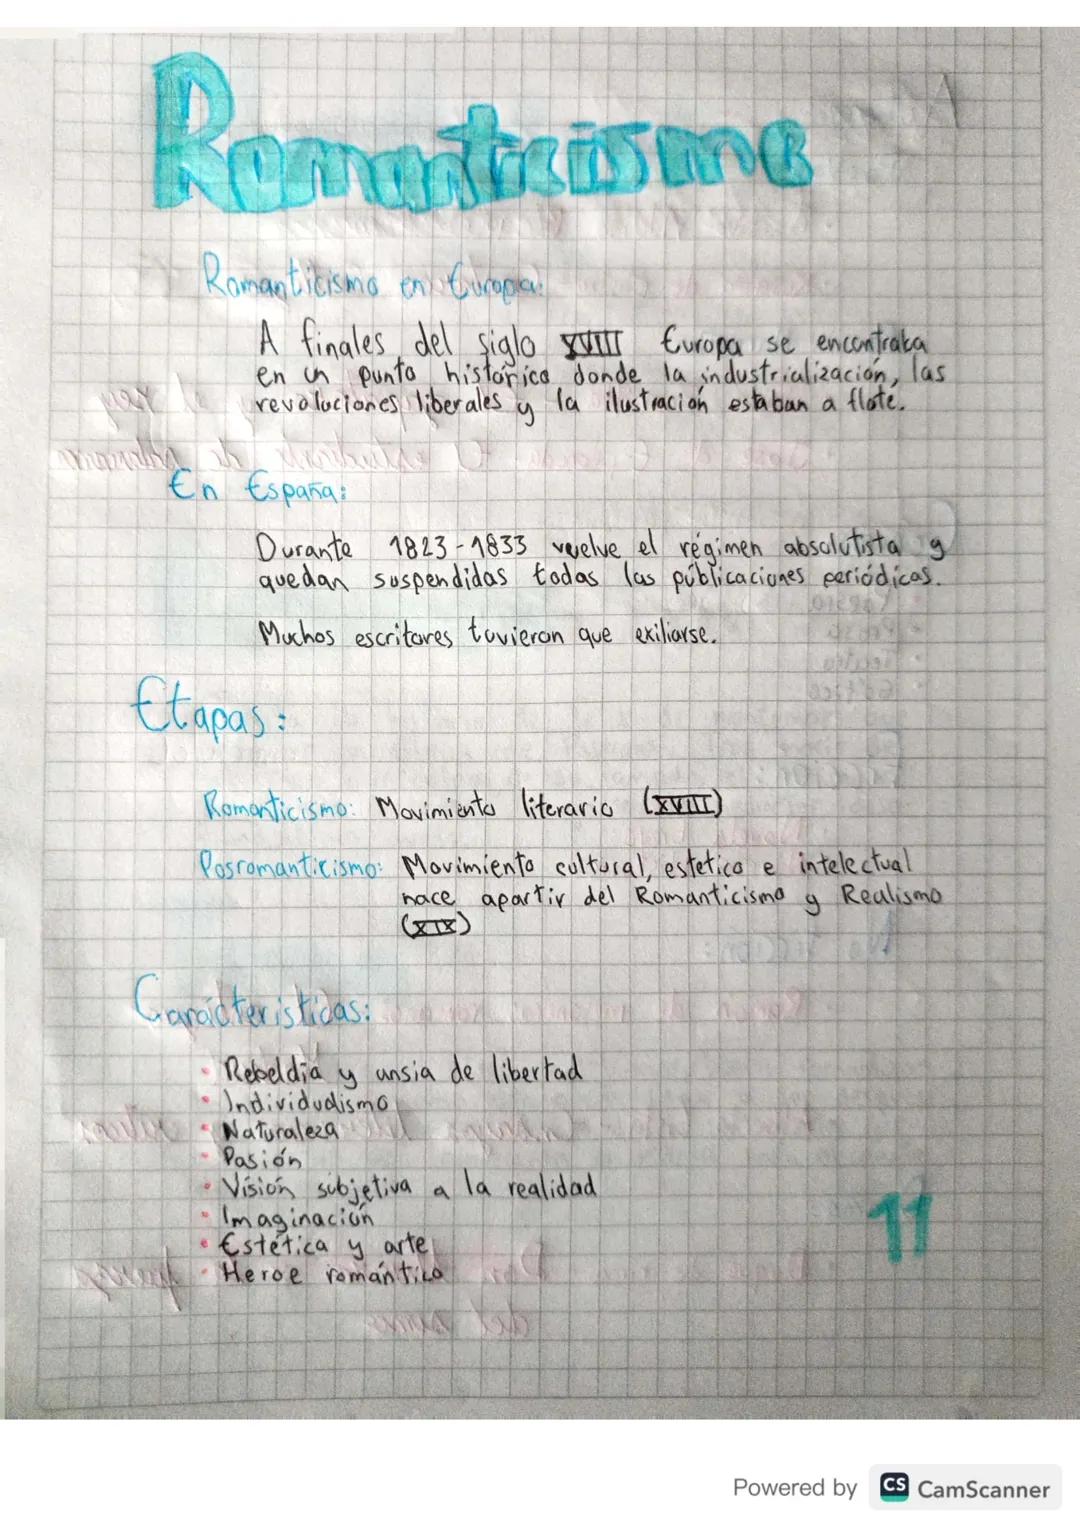 Romanticismo
Romanticismo en Europa:
A finales del siglo XVIII Europa se encontraba
en un punto histórico donde la industrialización, las
revoluciones liberales y la ilustración estaban a flote.
En España:
Durante 1823-1833 vuelve el régimen absolutista y
quedan suspendidas todas las públicaciones periódicas.
Muchos escritores tuvieron que exiliarse.
Etapas:
Romanticismo: Movimiento literario (XVIII)
Posromanticismo: Movimiento cultural, estetico e intelectual
nace apartir del Romanticismo y Realismo
(XIX)
Carácteristicas:
• Rebeldía y ansia de libertad
• Individualismo
• Naturaleza
• Pasión
• Visión subjetiva a la realidad
• Imaginación
• Estética y arte
• Heroe romántico
11
Powered by CS CamScanner